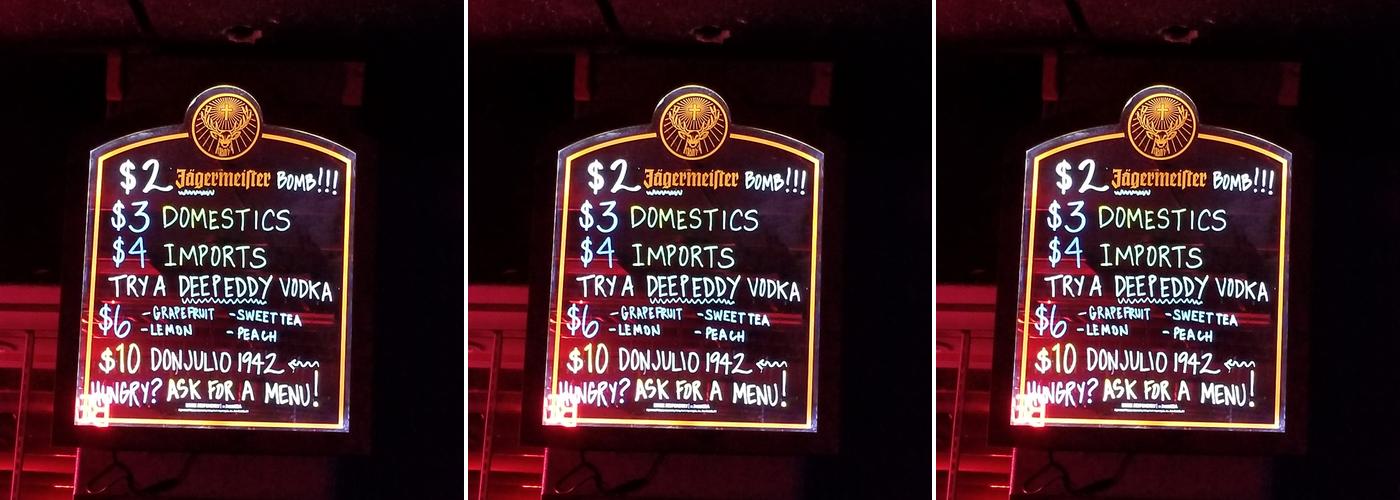 $2 Jägermeister BOMB!!!
$3 DOMESTICS
$4 IMPORTS
TRY A DEEPEDDY VODKA
$6 -GRAPEFRUIT -SWEET TEA
-LEMON -PEACH
$10 DONJULIO 1942
HUNGRY? ASK FOR A MENU!
$2 Jägermeister BOMB!!!
$3 DOMESTICS
$4 IMPORTS
TRY A DEEPEDDY VODKA
$6 -GRAPEFRUIT -SWEET TEA
-LEMON -PEACH
$10 DONJULIO 1942
HUNGRY? ASK FOR A MENU!
$2 Jägermeister BOMB!!!
$3 DOMESTICS
$4 IMPORTS
TRY A DEEPEDDY VODKA
$6 -GRAPEFRUIT -SWEET TEA
-LEMON -PEACH
$10 DONJULIO 1942
HUNGRY? ASK FOR A MENU!